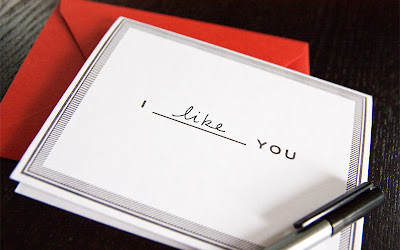 I like YOU